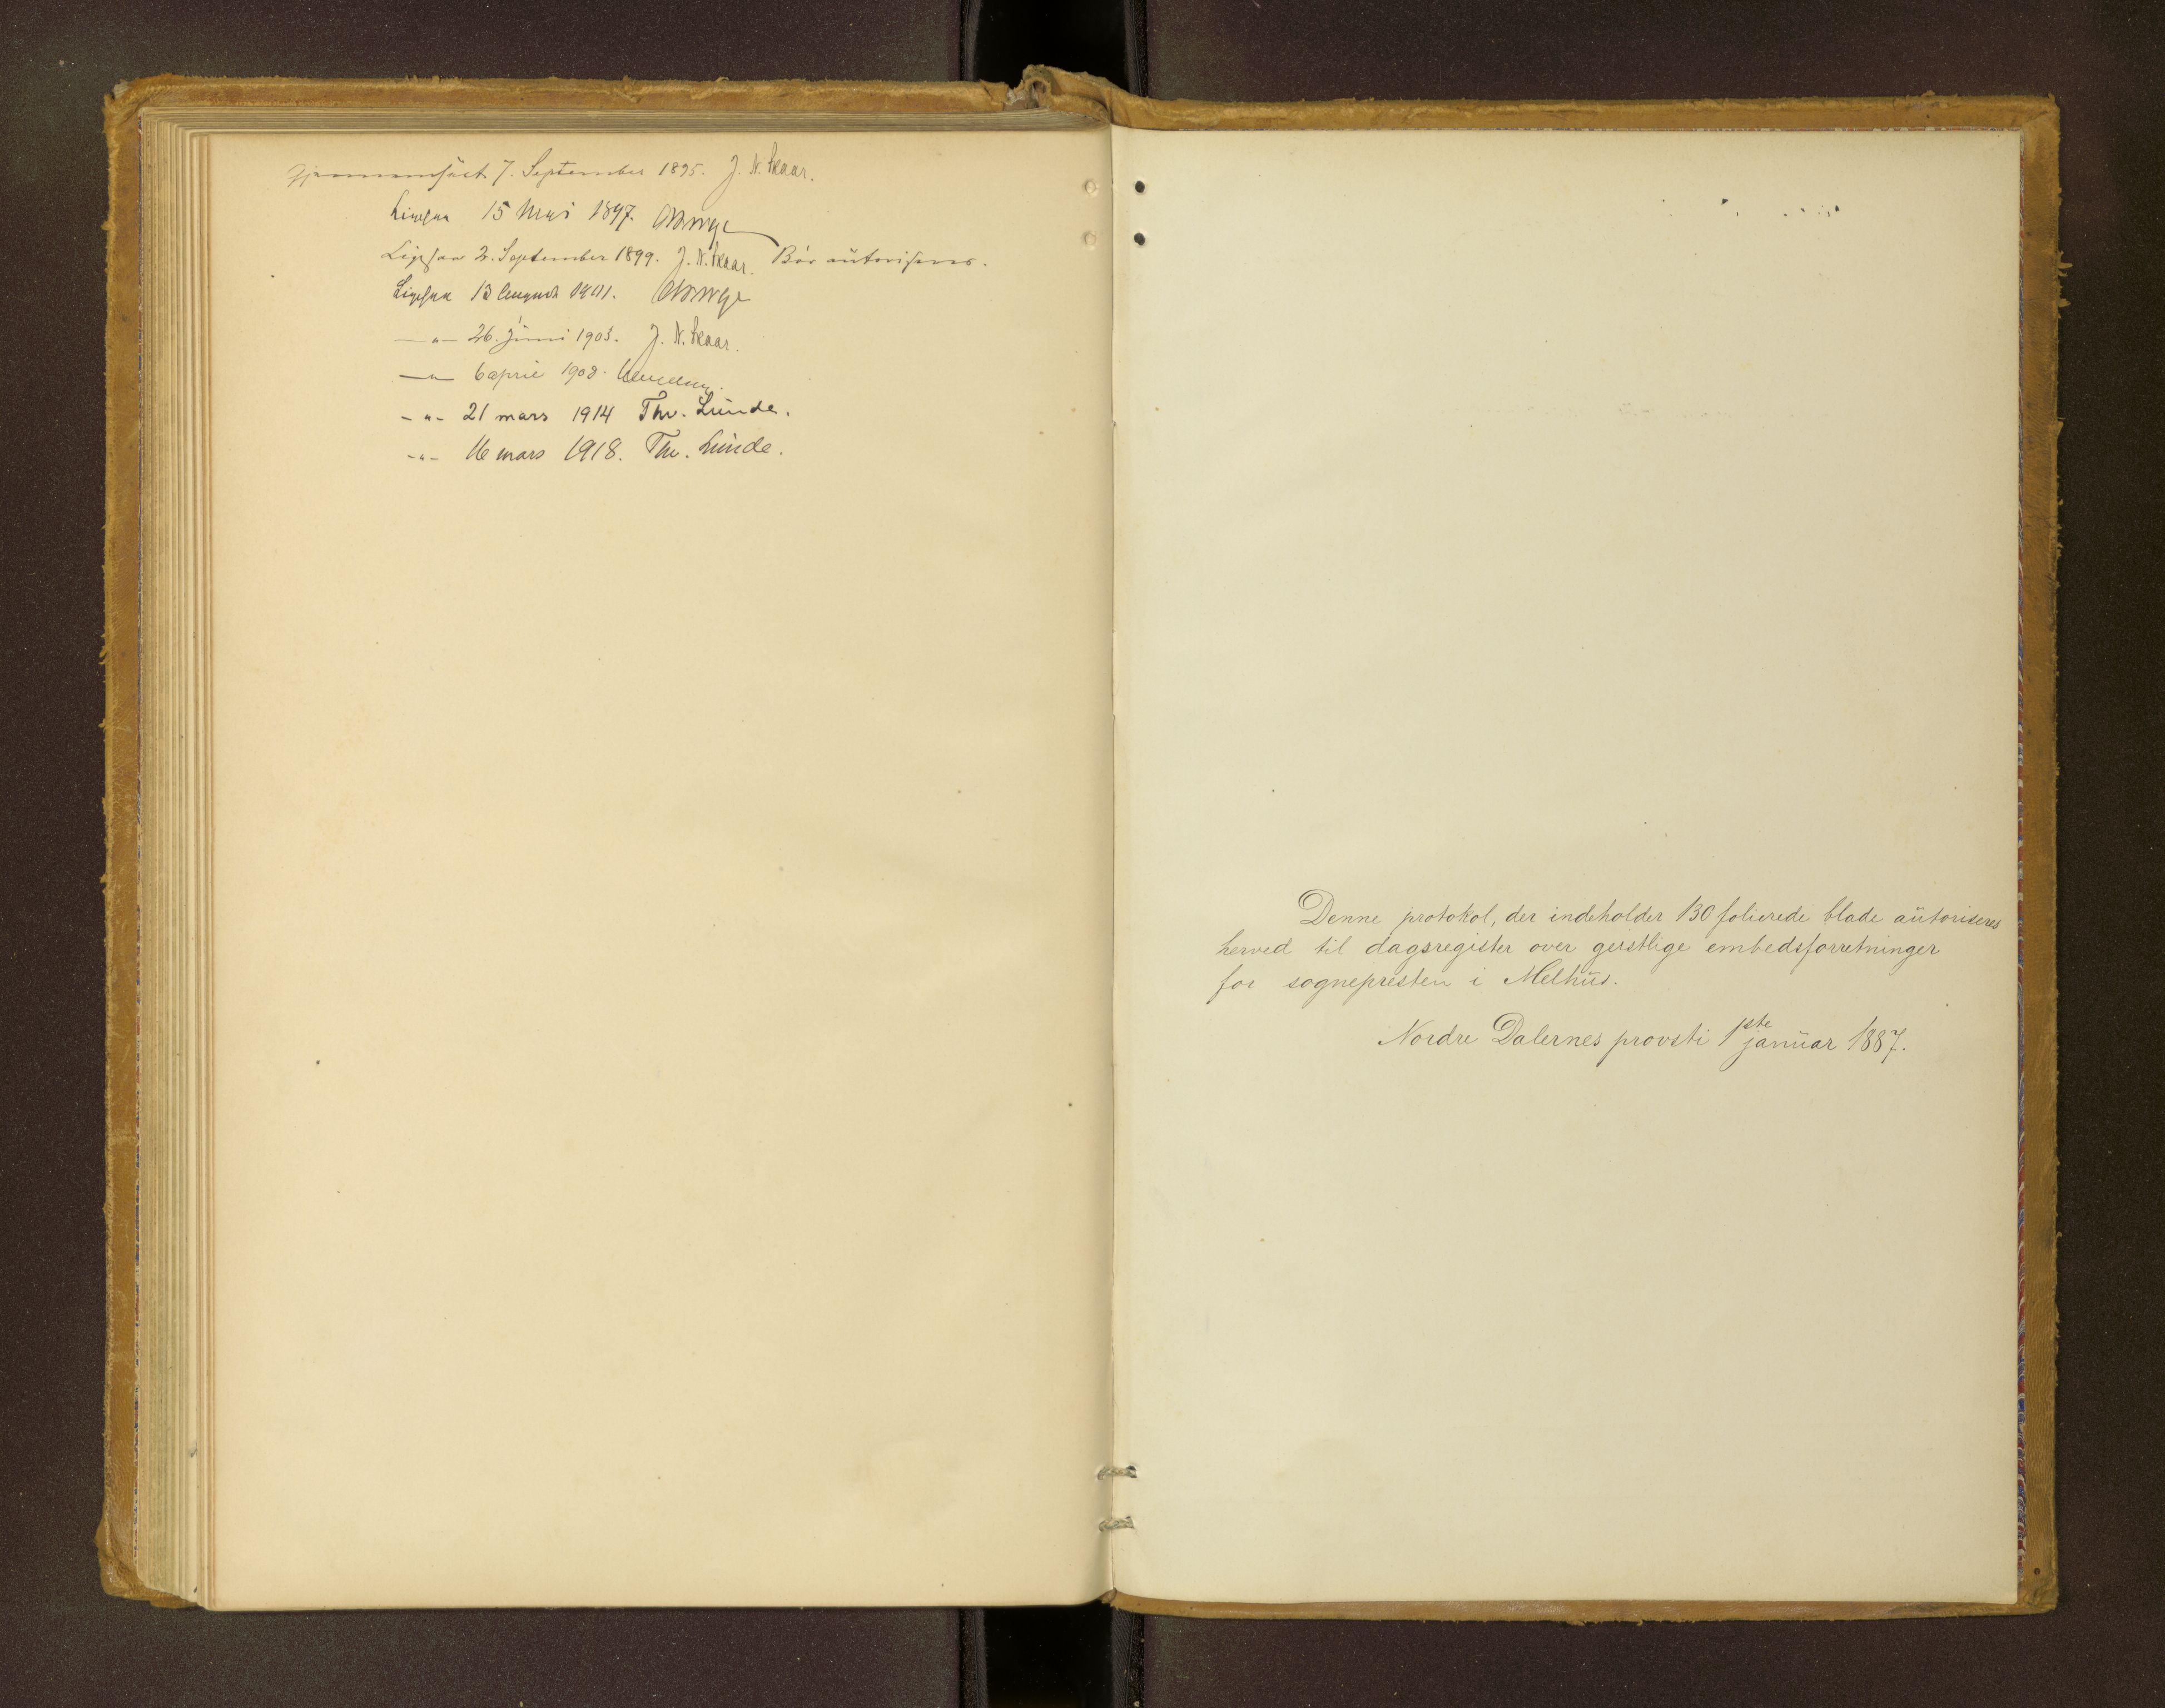 Gjennemseet 7. September 1895. J. N. Skaar.
Ligesaa 15 Mai 1897.
Ligesaa 2. September 1899. J. N. Skaar. Bør autoriseres.
Ligesaa 13 August 1901.
—„— 26. juni 1903. J. N. Skaar.
—„— 6 april 1908.
-„- 21 mars 1914 Thv. Lunde.
-„- 16 mars 1918. Thv. Lunde.
Denne protokol, der indeholder 130 folierede blade autoriseres
herved til dagsregister over geistlige embedsforretninger
for sognepresten i Melhus.
Nordre Dalernes provsti 1ste januar 1887.